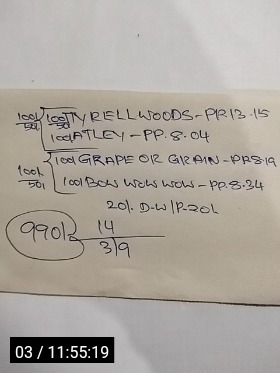 100/ 100/ TYRELLWOODS-PR13.15
50/ 100/ ATLEY-PP.8.04
100/ 100/ GRAPE OR GRAIN-PP.8.19
50/ 100/ BOW WOW WOW-PP.8.34
20/. D-W/P-20/.
990/. 14
3/9
03 / 11:55:19